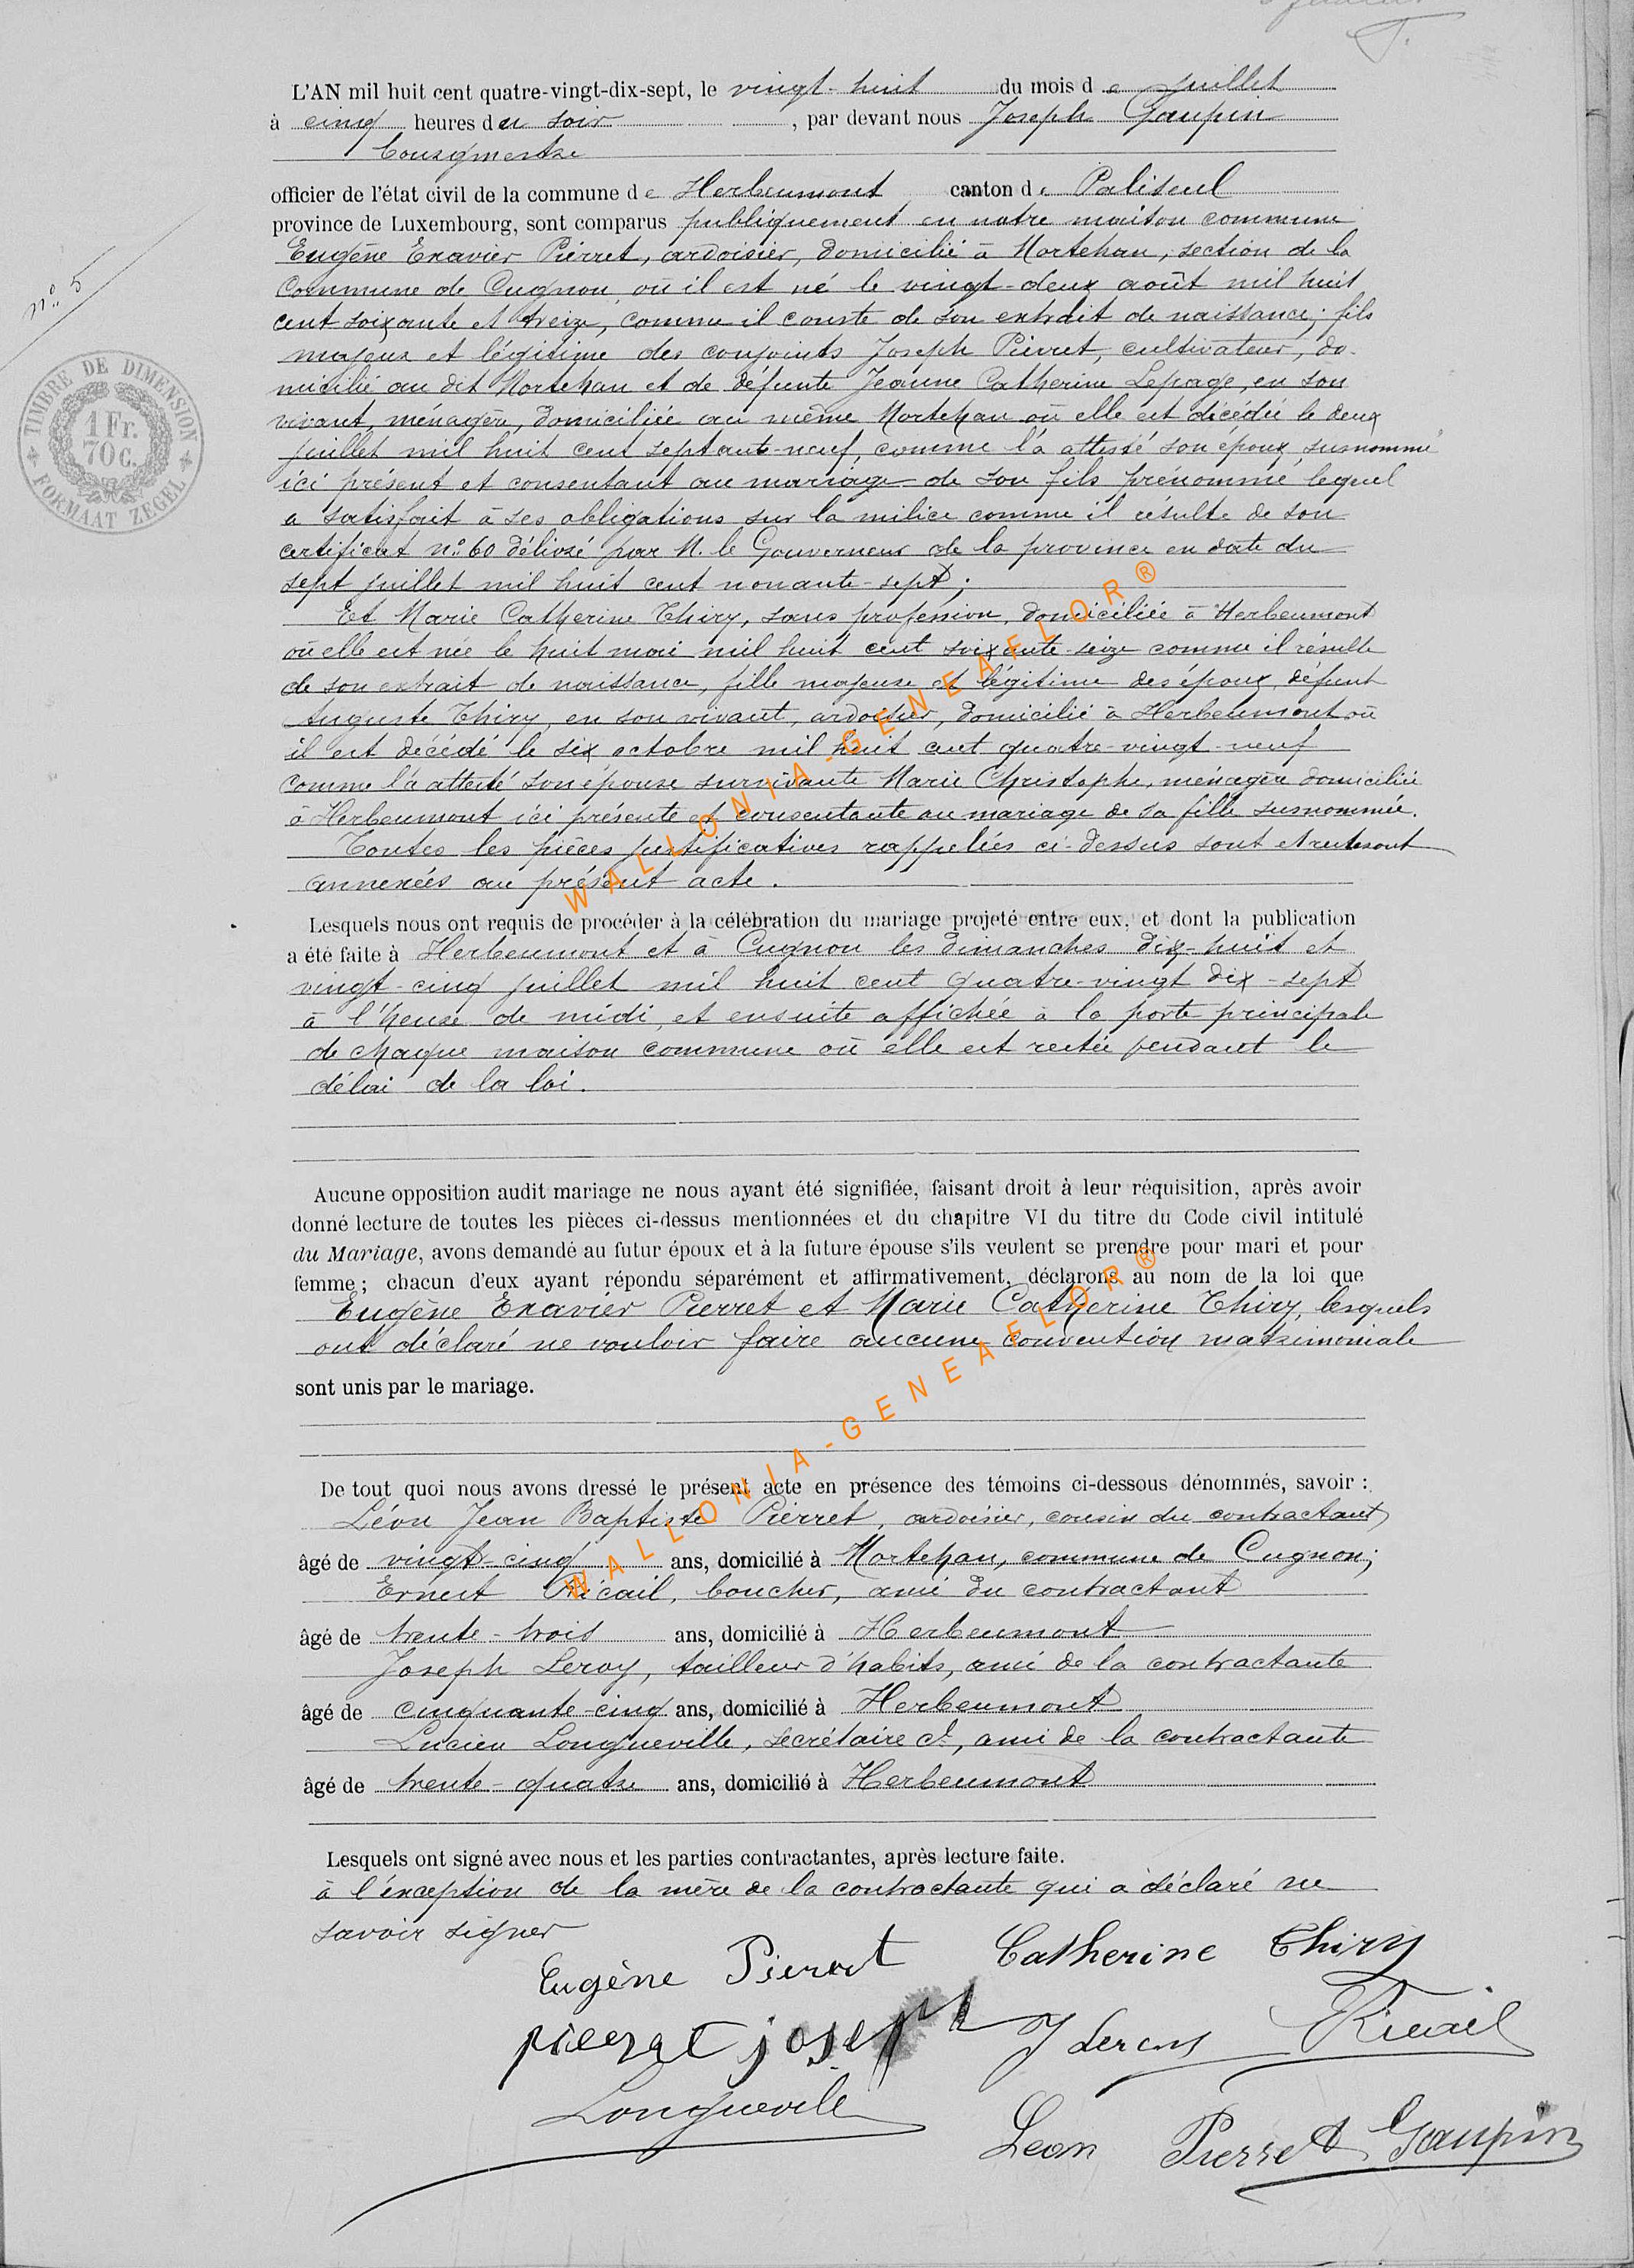 L'AN mil huit cent quatre-vingt-dix-sept, le vingt-huit du mois de Juillet
à cinq heures du soir, par devant nous Joseph Gaupin
Bourgmestre
officier de l'état civil de la commune de Herbeumont canton de Paliseul
province de Luxembourg, sont comparus publiquement en notre maison commune
Eugène Exavier Pierret, ardoisier, domicilié à Mortehan, section de la
Commune de Cugnon, où il est né le vingt-deux août mil huit
cent soixante et treize, comme il conste de son extrait de naissance; fils
majeur et légitime des conjoints Joseph Pierret, cultivateur, do-
micilié au dit Mortehan et de défunte Jeanne Catherine Lepage, en son
vivant, ménagère, domiciliée au même Mortehan où elle est décédée le deux
juillet mil huit cent septante-neuf, comme l'a attesté son époux susnommé
ici présent et consentant au mariage de son fils prénommé lequel
a satisfait à ses obligations sur la milice comme il résulte de son
certificat n° 60 délivré par M. le Gouverneur de la province en date du
sept juillet mil huit cent nonante-sept;
Et Marie Catherine Thiry, sans profession, domiciliée à Herbeumont
où elle est née le huit mai mil huit cent soixante-seize comme il résulte
de son extrait de naissance, fille majeure et légitime des époux, défunt
Auguste Thiry, en son vivant, ardoisier, domicilié à Herbeumont où
il est décédé le six octobre mil huit cent quatre-vingt-neuf
comme l'a attesté son épouse survivante Marie Christophe, ménagère domiciliée
à Herbeumont ici présente et consentante au mariage de sa fille susnommée.
Toutes les pièces justificatives rappelées ci-dessus sont et resteront
annexées au présent acte.
n° 5
TIMBRE DE DIMENSION
1 Fr.
70 C.
FORMAAT ZEGEL
WALLONIA-GENEAFLOR®
Lesquels nous ont requis de procéder à la célébration du mariage projeté entre eux, et dont la publication
a été faite à Herbeumont et à Cugnon les dimanches dix-huit et
vingt-cinq juillet mil huit cent quatre-vingt dix-sept
à l'heure de midi, et ensuite affichée à la porte principale
de chaque maison commune où elle est restée pendant le
délai de la loi.
Aucune opposition audit mariage ne nous ayant été signifiée, faisant droit à leur réquisition, après avoir
donné lecture de toutes les pièces ci-dessus mentionnées et du chapitre VI du titre du Code civil intitulé
du Mariage, avons demandé au futur époux et à la future épouse s'ils veulent se prendre pour mari et pour
femme; chacun d'eux ayant répondu séparément et affirmativement, déclarons au nom de la loi que
Eugène Exavier Pierret et Marie Catherine Thiry, lesquels
ont déclaré ne vouloir faire aucune convention matrimoniale
sont unis par le mariage.
WALLONIA-GENEAFLOR®
De tout quoi nous avons dressé le présent acte en présence des témoins ci-dessous dénommés, savoir :
Léon Jean Baptiste Pierret, ardoisier, cousin du contractant,
âgé de vingt-cinq ans, domicilié à Mortehan, commune de Cugnon;
Ernest Ricail, boucher, ami du contractant
âgé de trente-trois ans, domicilié à Herbeumont
Joseph Leroy, tailleur d'habits, ami de la contractante
âgé de cinquante-cinq ans, domicilié à Herbeumont
Lucien Longueville, secrétaire cl, ami de la contractante
âgé de trente-quatre ans, domicilié à Herbeumont
Lesquels ont signé avec nous et les parties contractantes, après lecture faite.
à l'exception de la mère de la contractante qui a déclaré ne
savoir signer
Eugène Pierret Catherine Thiry
pierret joseph J Leroy Ricail
Longueville
Leon Pierret Gaupin